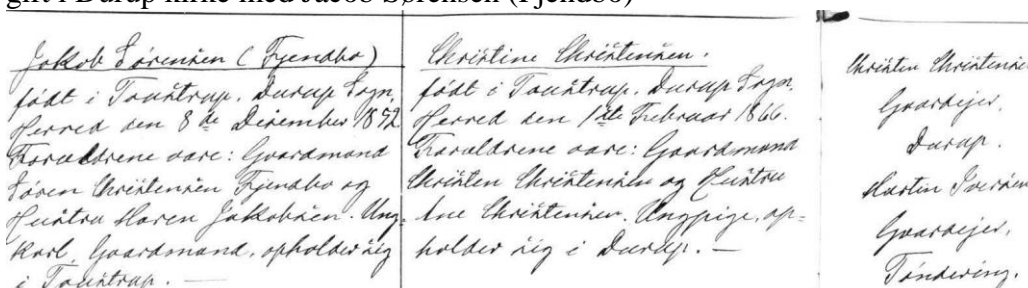 gift i Durup kirke med Jacob Sørensen (Fjendbo)
Jakob Sørensen (Fjendbo)
født i Toustrup, Durup Sogn,
Herred den 8de December 1852.
Forældrene vare: Gaardmand
Søren Christensen Fjendbo og
Hustru Maren Jakobsen. Ung-
karl, Gaardmand, opholder sig
i Toustrup. —
Christine Christensen.
født i Toustrup, Durup Sogn,
Herred den 1ste Februar 1866.
Forældrene vare: Gaardmand
Christen Christensen og Hustru
Ane Christensen. Ungpige, op-
holder sig i Durup. —
Christen Christensen
Gaardejer,
Durup.
Martin Iversen
Gaardejer,
Tøndering.